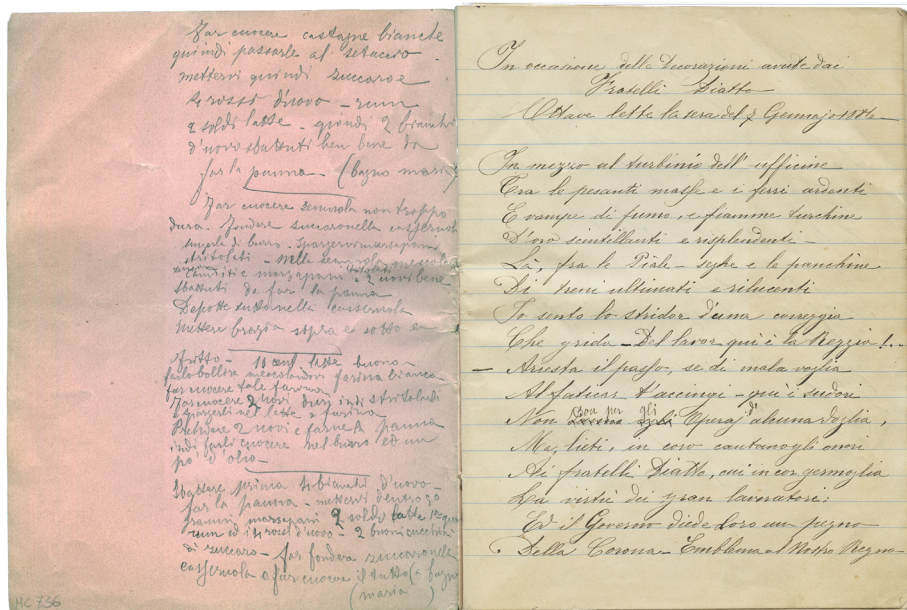 Far cuocere castagne bianche
quindi passarle al setaccio.
mettervi quindi zuccaro e
rossi d'uovo - rum
2 soldi latte - quindi 2 bianchi
d'uovo sbattuti ben bene da
far la panna (bagno maria)
Far cuocere semola non troppo
dura. Fondere zuccaro nella casserola
di burro. Spargervi marzapani
stritolati - nella semola mescola
canditi e marzapani stritolati e 2 uovi bene
sbattuti da far la panna
Deporre tutto nella casserola
Mettere bragia sopra e sotto
Fritto - latte buono -
farlo bollire mescolandovi farina bianca
far cuocere tale farina
Far cuocere 2 uovi duri indi stritolarli
e spargerli nel latte e farina
Prendere 2 uovi e farne la panna
indi farli cuocere nel burro ed un
po' d'olio -
Sbattere prima bianchi d'uovo -
far la panna - mettervi dentro 90
grammi marzapani 2 soldo latte
rum ed rossi d'uovo - 2 buoni cucchiai
di zuccaro - far fondere zuccaro nella
casserola e far cuocere il tutto (a bagno
(maria)
MC 736
In occasione delle Decorazioni avute dai
Fratelli Diatto
Ottave lette la sera del 2 Gennajo 1886 -
In mezzo al turbinio dell' ufficine
Tra le pesanti masse e i ferri ardenti
E vampe di fumo, e fiamme turchine
D'oro scintillanti e risplendenti -
Là, fra le Piale - seghe e le panchine
Di treni ultimati e rilucenti
Io sento lo stridor d'una correggia
Che grida - Del lavor qui è la Reggia!..
- Arresta il passo, se di mala voglia
Al faticar t'accinge - qui è sudori
Non con per gli Operaj d'alcuna doglia,
Ma, lieti, in coro cantano gli onori
Ai fratelli Diatto, cui in cor germoglia
La virtù dei gran lavoratori:
Ed il Governo diede loro un pegno
Della Corona - Emblema al Nostro Regno -